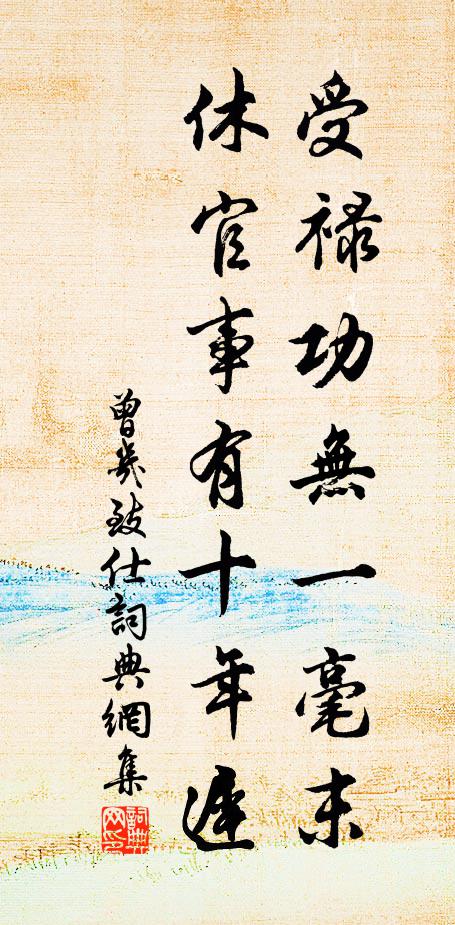 受祿功無一毫末
休官事有十年遲
曾幾致仕詞典網集
詞典网印